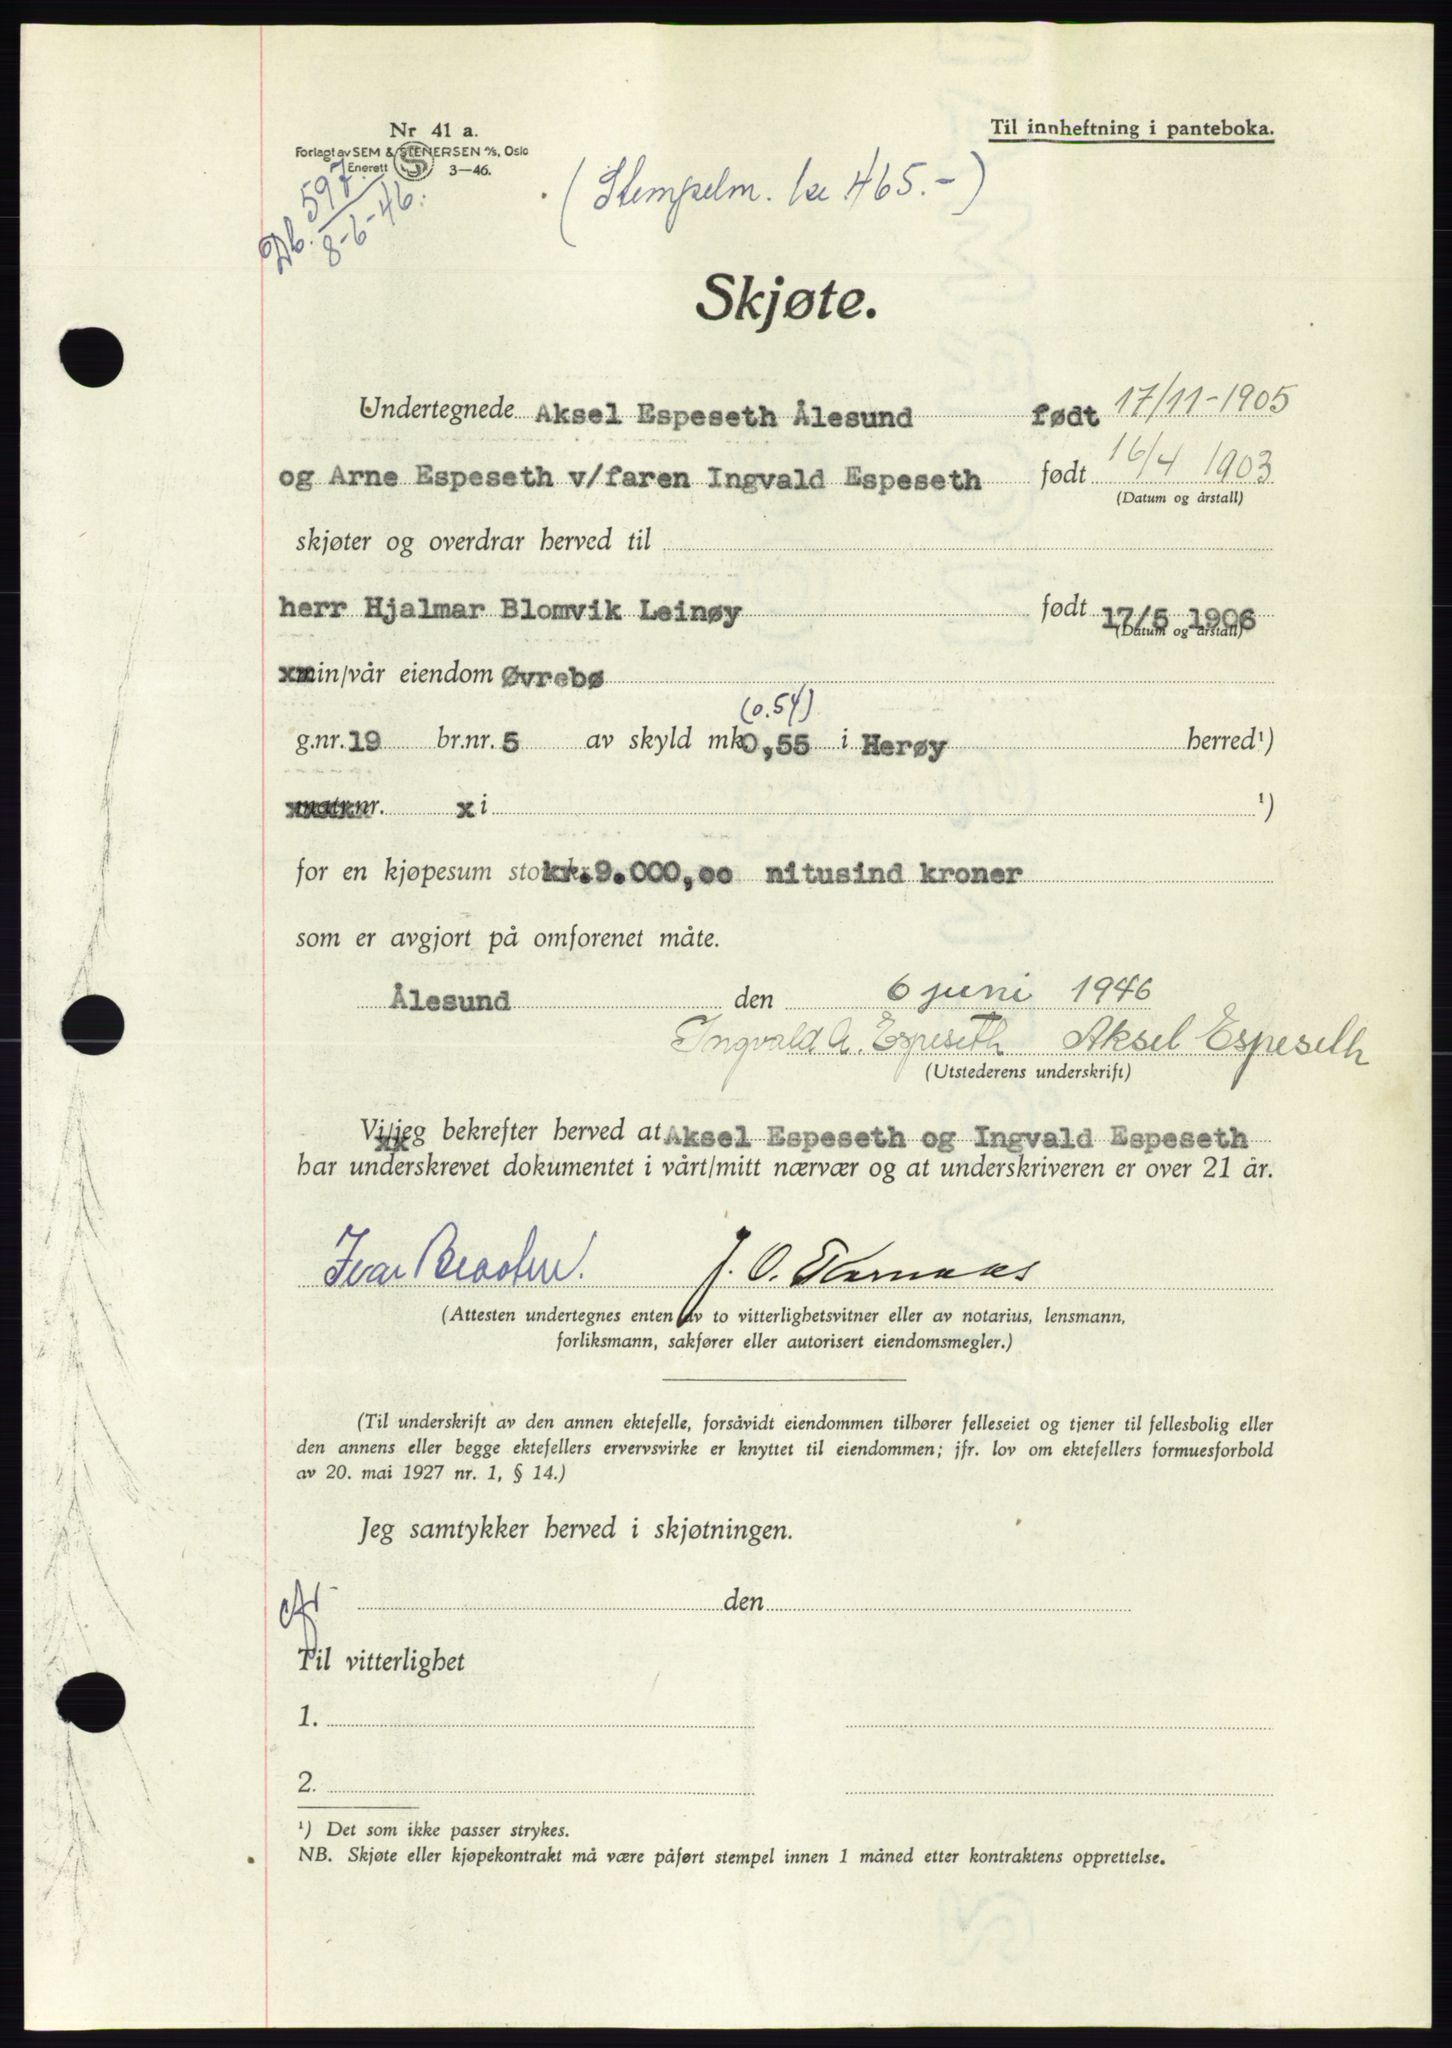 Nr 41 a.
Forlagt av SEM & STENERSEN A/S, Oslo
Enerett 3—46.
Til innheftning i panteboka.
Db. 597
8-6-46.
(Stempelm. kr 465.-)
Skjøte.
Undertegnede Aksel Espeseth Ålesund født 17/11-1905
og Arne Espeseth v/faren Ingvald Espeseth født 16/4 1903
(Datum og årstall)
skjøter og overdrar herved til
herr Hjalmar Blomvik Leinøy født 17/5 1906
(Datum og årstall)
xmin/vår eiendom Øvrebø
(0.54)
g.nr. 19 br.nr. 5 av skyld mk 0,55 i Herøy herred¹)
xmatr.nr. x i ¹)
for en kjøpesum stor kr. 9.000,oo nitusind kroner
som er avgjort på omforenet måte.
Ålesund den 6 juni 1946
Ingvald A. Espeseth Aksel Espeseth
(Utstederens underskrift)
Vi/jeg bekrefter herved at Aksel Espeseth og Ingvald Espeseth
har underskrevet dokumentet i vårt/mitt nærvær og at underskriveren er over 21 år.
Ivar J. O.
(Attesten undertegnes enten av to vitterlighetsvitner eller av notarius, lensmann,
forliksmann, sakfører eller autorisert eiendomsmegler.)
(Til underskrift av den annen ektefelle, forsåvidt eiendommen tilhører felleseiet og tjener til fellesbolig eller
den annens eller begge ektefellers ervervsvirke er knyttet til eiendommen; jfr. lov om ektefellers formuesforhold
av 20. mai 1927 nr. 1, § 14.)
Jeg samtykker herved i skjøtningen.
den
Til vitterlighet
1.
2.
¹) Det som ikke passer strykes.
NB. Skjøte eller kjøpekontrakt må være påført stempel innen 1 måned etter kontraktens opprettelse.